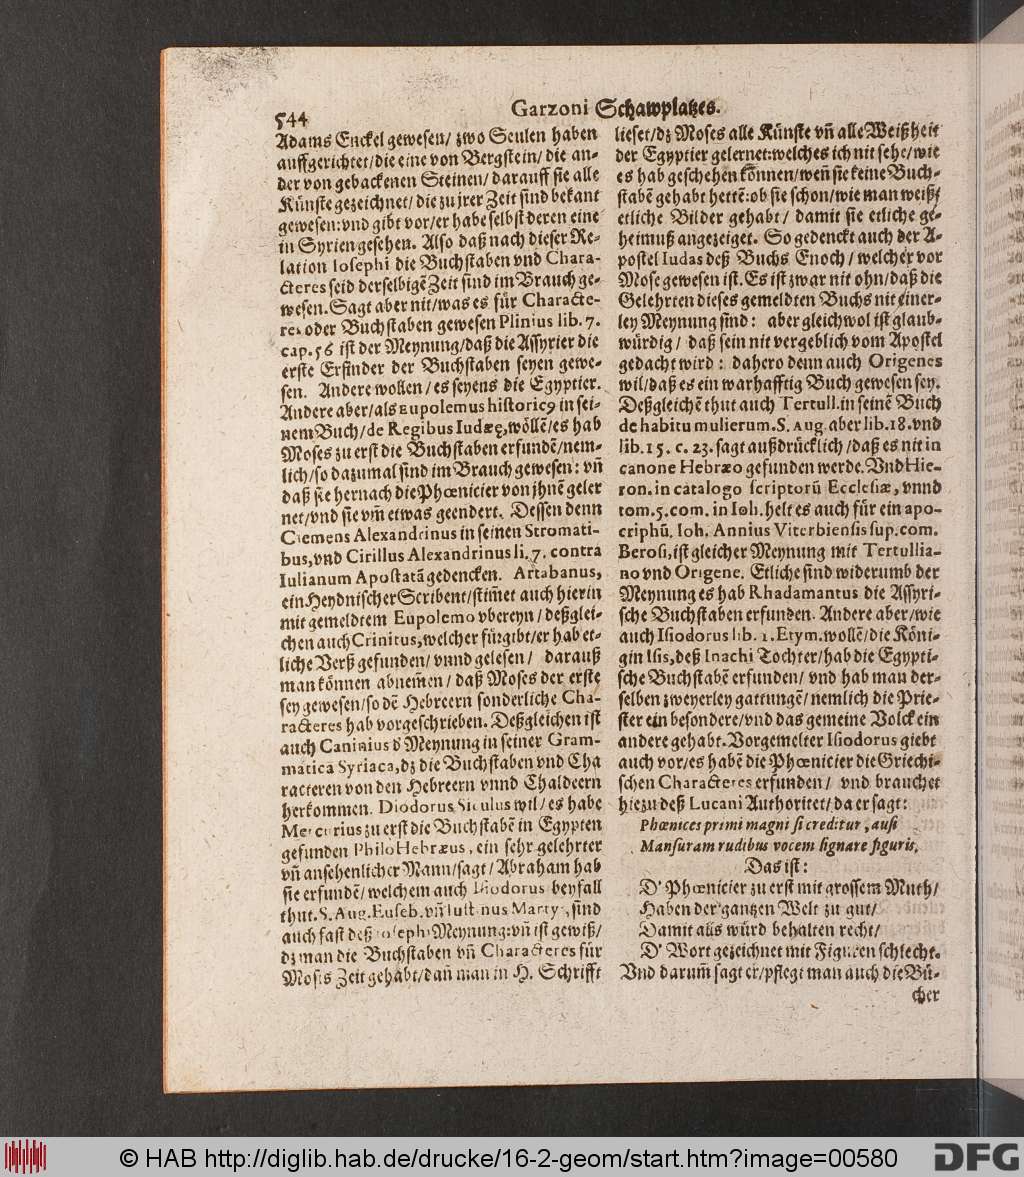 544
Garzoni Schawplatzes.
Adams Enckel gewesen/ zwo Seulen haben
auffgerichtet/die eine von Bergstein/ die an-
der von gebackenen Steinen/ darauff sie alle
Künste gezeichnet/ die zu jrer Zeit sind bekant
gewesen: vnd gibt vor/ er habe selbst deren eine
in Syrien gesehen. Also daß nach dieser Re-
lation Iosephi die Buchstaben vnd Chara-
cteres seid derselbigẽ Zeit sind im Brauch ge-
wesen. Sagt aber nit/was es für Characte-
res oder Buchstaben gewesen Plinius lib. 7.
cap. 56 ist der Meynung/daß die Assyrier die
erste Erfinder der Buchstaben seyen gewe-
sen. Andere wollen/ es seyens die Egyptier.
Andere aber/als Eupolemus historicꝰ in sei-
nem Buch/ de Regibus Iudæę, wöllẽ/es hab
Moses zu erst die Buchstaben erfundẽ/nem-
lich/so dazumal sind im Brauch gewesen: vñ
daß sie hernach die Phœnicier von jhnẽ geler
net/vnd sie vm̃ etwas geendert. Dessen denn
Clemens Alexandrinus in seinen Stromati-
bus, vnd Cirillus Alexandrinus li. 7. contra
Iulianum Apostatã gedencken. Artabanus,
ein Heydnischer Scribent/stim̃et auch hierin
mit gemeldtem Eupolemo vbereyn/ deßglei-
chen auch Crinitus, welcher fürgibt/er hab et-
liche Verß gefunden/ vnnd gelesen/ darauß
man können abnem̃en/ daß Moses der erste
sey gewesen/so dẽ Hebreern sonderliche Cha-
racteres hab vorgeschrieben. Deßgleichen ist
auch Caninius d̕ Meynung in seiner Gram-
matica Syriaca, dz die Buchstaben vnd Cha
racteren von den Hebreern vnnd Chaldeern
herkommen. Diodorus Siculus wil/ es habe
Mercurius zu erst die Buchstabẽ in Egypten
gefunden Philo Hebræus, ein sehr gelehrter
vñ ansehenlicher Mann/sagt/ Abraham hab
sie erfundẽ/ welchem auch Isiodorus beyfall
thut. S. Aug. Euseb. vñ Iustinus Martyr, sind
auch fast deß Iosephi Meynung: vñ ist gewiß/
dz man die Buchstaben vñ Characteres für
Mosis Zeit gehabt/dañ man in H. Schrifft
lieset/dz Moses alle Künste vñ alle Weißheit
der Egyptier gelernet: welches ich nit sehe/ wie
es hab geschehen können/ weñ sie keine Buch-
stabẽ gehabt hettẽ: ob sie schon/wie man weiß/
etliche Bilder gehabt/ damit sie etliche ge-
heimuß angezeiget. So gedenckt auch der A-
postel Iudas deß Buchs Enoch/ welcher vor
Mose gewesen ist. Es ist zwar nit ohn/daß die
Gelehrten dieses gemeldten Buchs nit einer-
ley Meynung sind: aber gleichwol ist glaub-
würdig/ daß sein nit vergeblich vom Apostel
gedacht wird: dahero denn auch Origenes
wil/daß es ein warhafftig Buch gewesen sey.
Deßgleichẽ thut auch Tertull. in seinẽ Buch
de habitu mulierum. S. Aug. aber lib. 18. vnd
lib. 15. c. 23. sagt außdrücklich/daß es nit in
canone Hebræo gefunden werde. Vnd Hie-
ron. in catalogo scriptorũ Ecclesiæ, vnnd
tom. 5. com. in Ioh. helt es auch für ein apo-
criphũ. Ioh. Annius Viterbiensis sup. com.
Berosi, ist gleicher Meynung mit Tertullia-
no vnd Origene. Etliche sind widerumb der
Meynung es hab Rhadamantus die Assyri-
sche Buchstaben erfunden. Andere aber/wie
auch Isiodorus lib. 1. Etym. wollẽ/die Köni-
gin Isis, deß Inachi Tochter/hab die Egypti-
sche Buchstabẽ erfunden/ vnd hab man der-
selben zweyerley gattungẽ/ nemlich die Prie-
ster ein besondere/vnd das gemeine Volck ein
andere gehabt. Vorgemelter Isiodorus giebt
auch vor/es habẽ die Phœnicier die Griechi-
schen Characteres erfunden/ vnd brauchet
hiezu deß Lucani Authoritet/ da er sagt:
Phœnices primi magni si creditur, ausi
Mansuram rudibus vocem signare figuris,
Das ist:
D' Phœnicier zu erst mit grossem Muth/
Haben der gantzen Welt zu gut/
Damit alls würd behalten recht/
D' Wort gezeichnet mit Figuren schlecht.
Vnd darum̃ sagt er/pflegt man auch die Bü-
cher
© HAB http://diglib.hab.de/drucke/16-2-geom/start.htm?image=00580
DFG